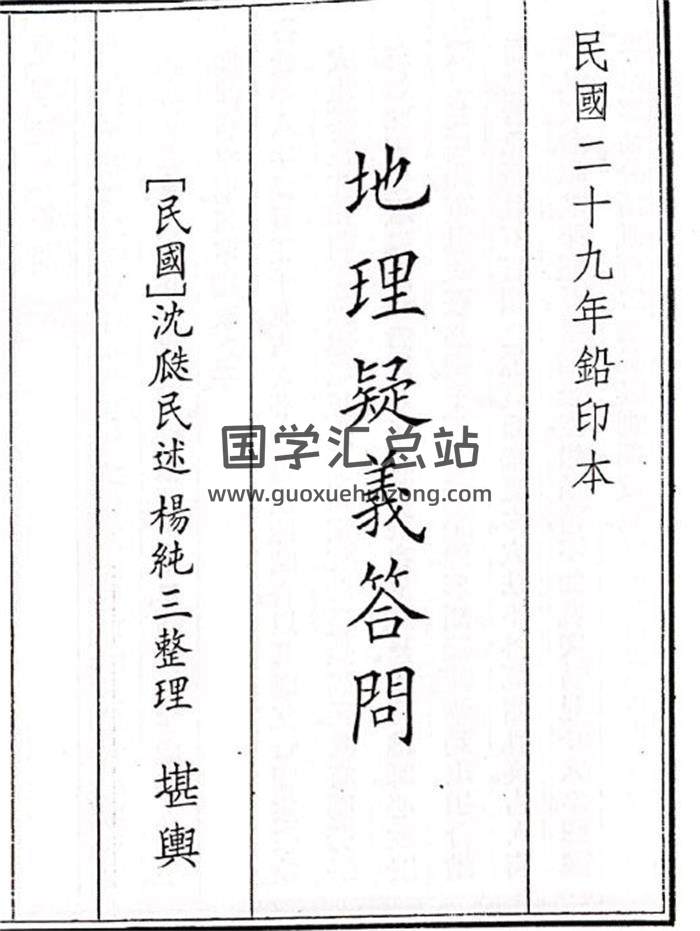 民國二十九年鉛印本
地理疑義答問
[民國]沈瓞民述 楊純三整理 堪輿
国学汇总站
www.guoxuehuizong.com